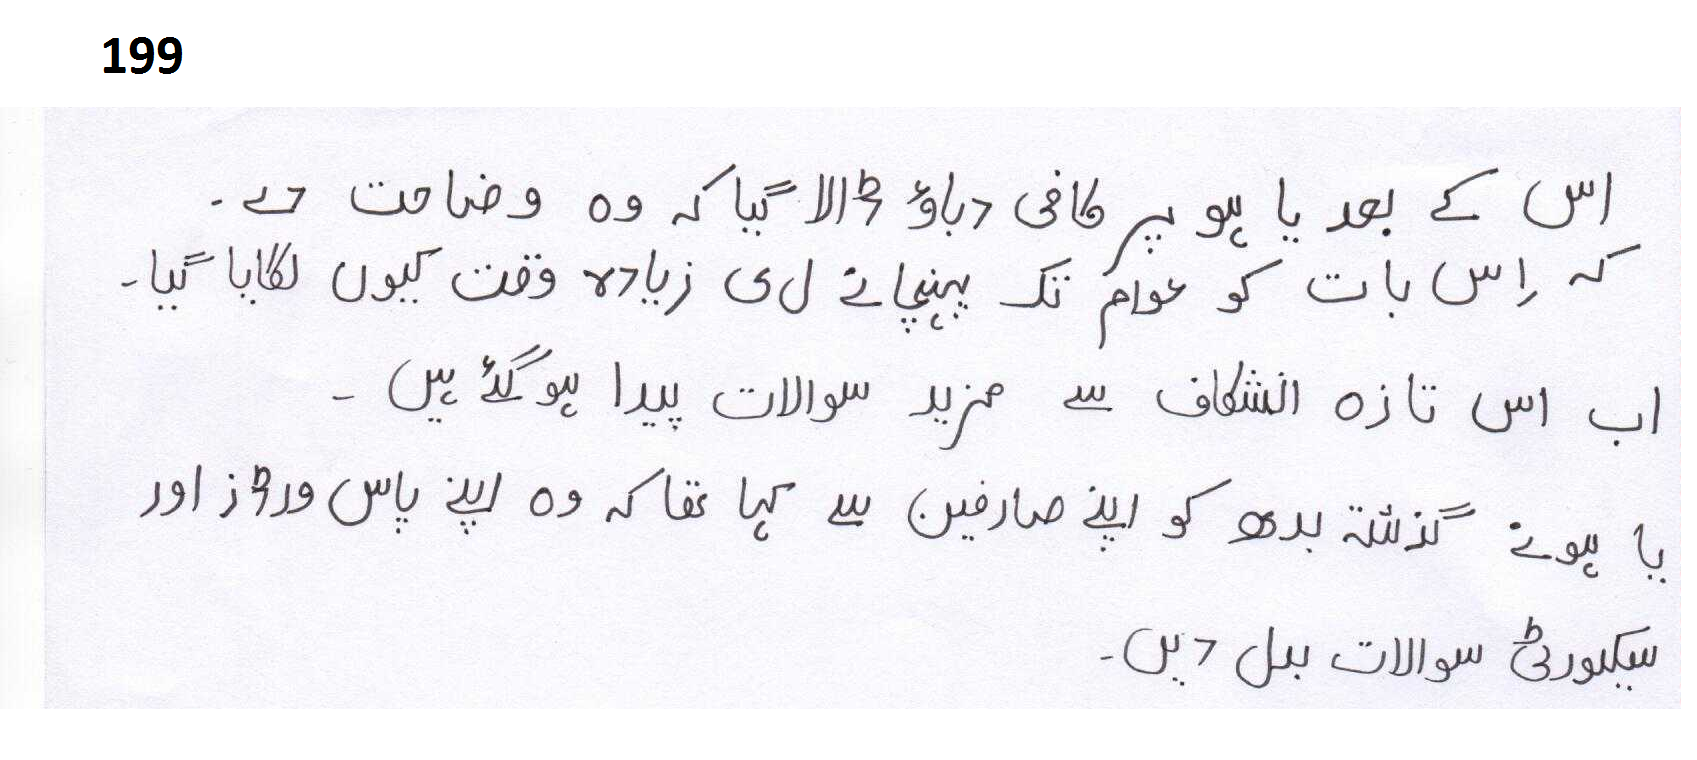 199
اس کے بعد یا ہو پر کافی دباؤ ڈالا گیا کہ وہ وضاحت دے۔
کہ اِس بات کو عوام تک پہنچانے ل ی زیادہ وقت کیوں لگایا گیا۔
اب اس تازہ انشکاف سے مزید سوالات پیدا ہوگئے ہیں ۔
یا ہونے گذشتہ بدھ کو اپنے صارفین سے کہا تھا کہ وہ اپنے پاس ورڈز اور
سیکیورٹی سوالات بدل دیں۔